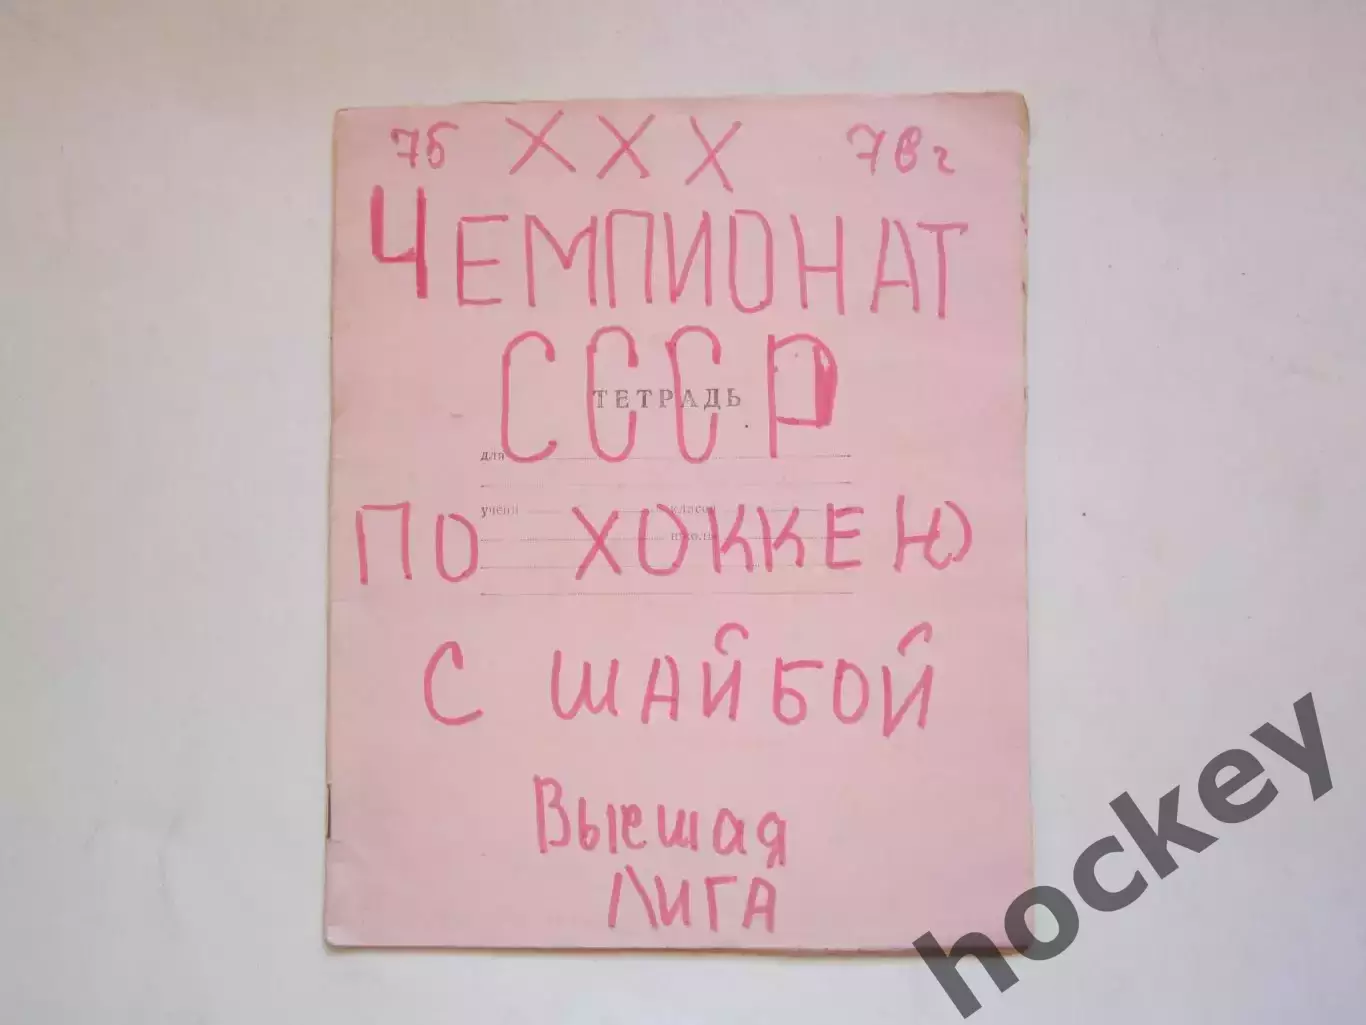 75 XXX 76 г
ЧЕМПИОНАТ
СССР
ТЕТРАДЬ
для
учени класса
школы
ПО ХОККЕЮ
С ШАЙБОЙ
Высшая
ЛИГА
hockey